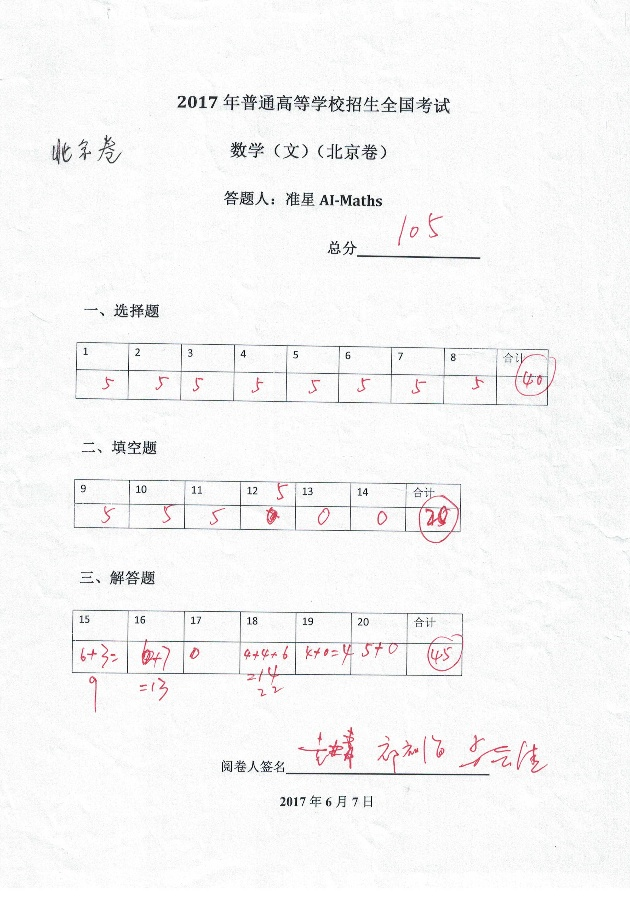 2017 年普通高等学校招生全国考试
北京卷
数学（文）（北京卷）
答题人：准星 AI-Maths
总分 105
一、选择题
1 2 3 4 5 6 7 8 合计
5 5 5 5 5 5 5 5 40
二、填空题
9 10 11 12 5 13 14 合计
5 5 5 0 0 20
三、解答题
15 16 17 18 19 20 合计
6+3= 6+7 0 4+4+6 4+0=4 5+0 45
9 =13 =14
22
阅卷人签名
2017 年 6 月 7 日